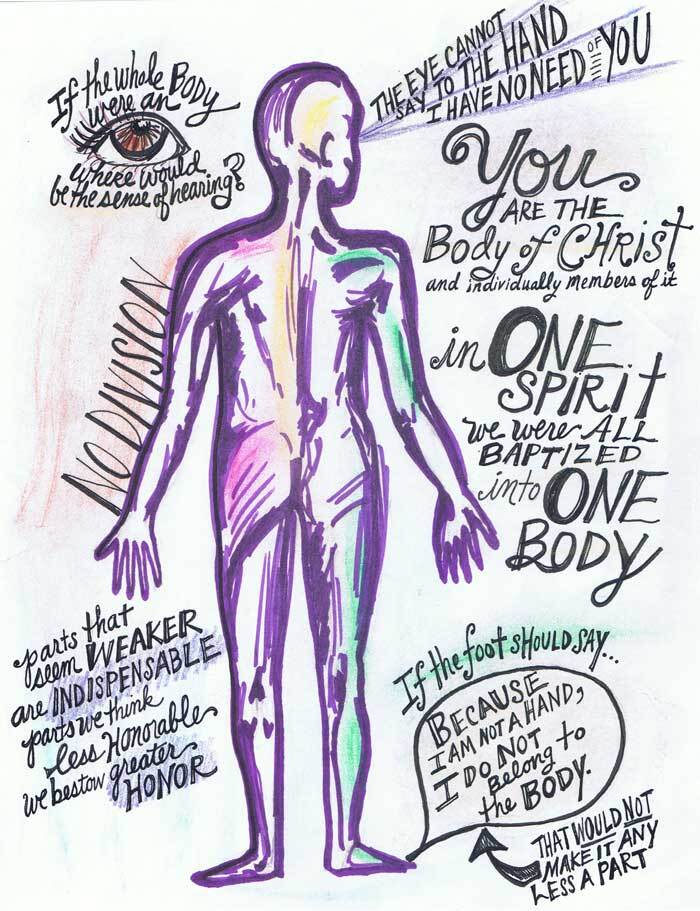 If the whole BODY
were an
where would
be the sense of hearing?
THE EYE CANNOT
SAY TO THE HAND
I HAVE NO NEED OF YOU
You
ARE THE
Body of CHRIST
and individually members of it
NO DIVISION
in ONE
SPIRIT
we were ALL
BAPTIZED
into ONE
BODY
parts that
seem WEAKER
are INDISPENSABLE
parts we think
less Honorable
we bestow greater
HONOR
If the foot SHOULD SAY...
BECAUSE
I AM NOT A HAND,
I DO NOT
Belong to
the BODY.
THAT WOULD NOT
MAKE IT ANY
LESS A PART